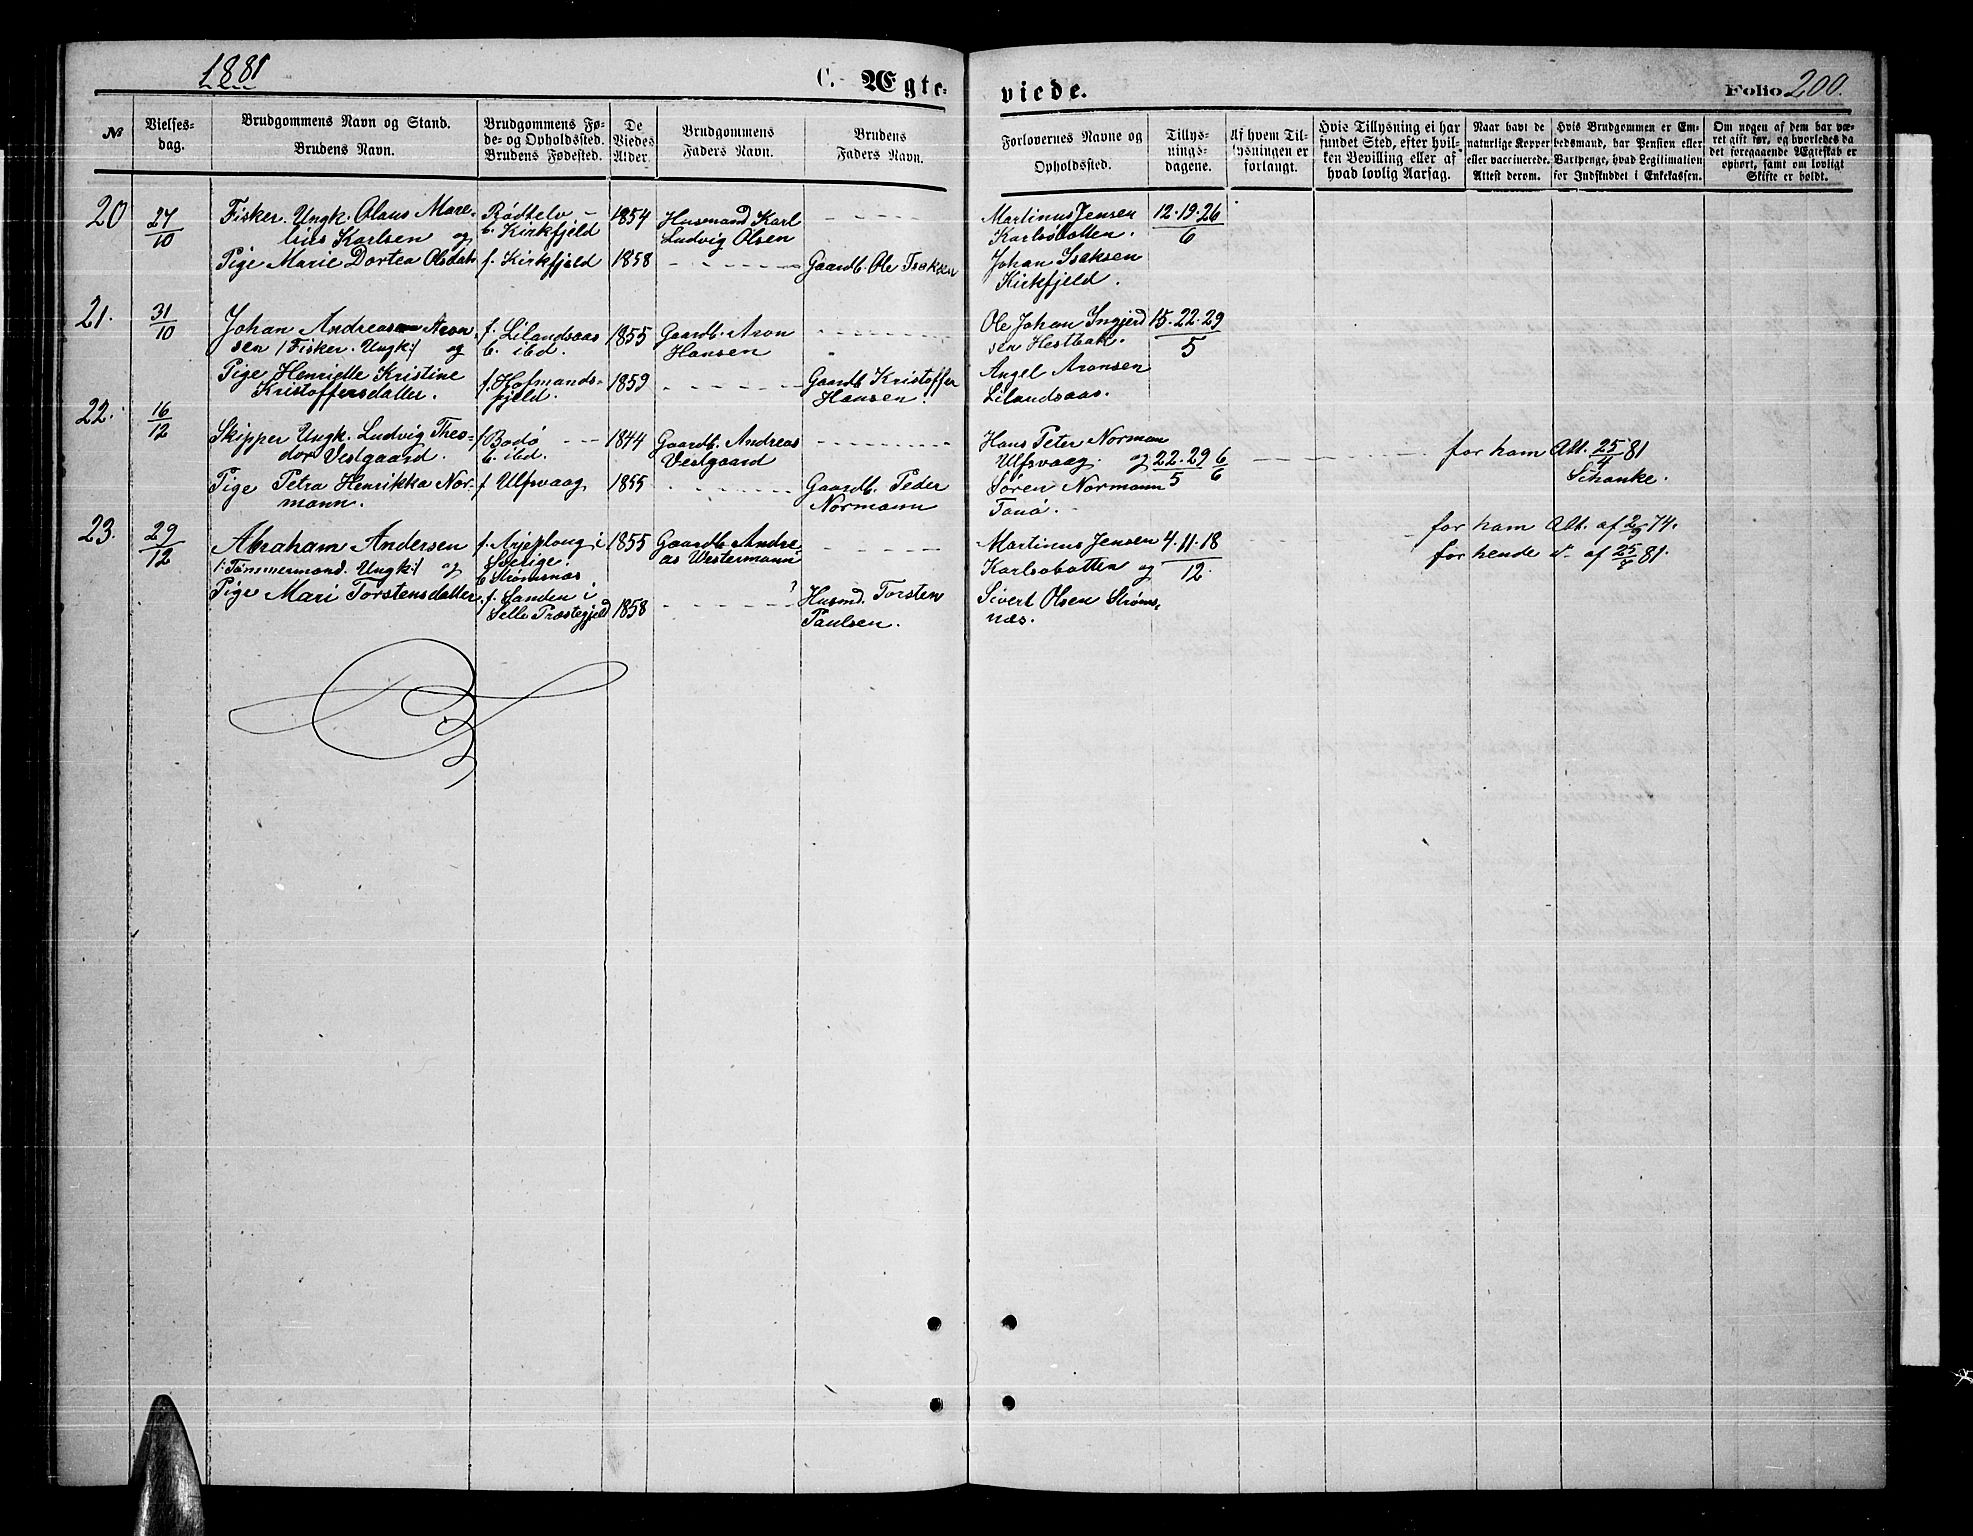 1881
C. Ægte-
viede.
Folio 200.
№
Vielses-
dag.
Brudgommens Navn og Stand.
Brudens Navn.
Brudgommens Fø-
de- og Opholdssted.
Brudens Fødested.
De
Viedes
Alder.
Brudgommens
Faders Navn.
Brudens
Faders Navn.
Forlovernes Navne og
Opholdssted.
Tillys-
nings-
dagene.
Af hvem Til-
lysningen er
forlangt.
Hvis Tillysning ei har
fundet Sted, efter hvil-
ken Bevilling eller af
hvad lovlig Aarsag.
Naar havt de
naturlige Kopper
eller vaccinerede.
Attest derom.
Hvis Brudgommen er Em-
bedsmand, har Pension eller
Vartpenge, hvad Legitimation
for Indskuddet i Enkekassen.
Om nogen af dem har væ-
ret gift før, og hvorledes da
det foregaaende Ægteskab er
ophørt, samt om lovligt
Skifte er holdt.
20
27/10
Fisker. Ungk. Olaus Mare-
lius Karlsen og
Pige Marie Dortea Olsdatr
Rødtelv -
b. Kirkfjeld
f. Kirkfjeld
1854
1858
Husmand Karl
Ludvig Olsen
Gaardb. Ole Isaksen
Martinus Jensen
Karlsobotten.
Johan Isaksen
Kirkfjeld.
12. 19. 26/6
21.
31/10
Johan Andreas Aron
sen /: Fisker. Ungk :/ og
Pige Henriette Kristine
Kristoffersdatter.
f. Lilandsaas
b. ibd.
f. Hofmands-
fjeld.
1855
1859
Gaardb. Aron
Hansen
Gaardb Kristoffer
Hansen.
Ole Johan Ingjerd
sen Hestbak.
Angel Aronsen
Lilandsaas.
15. 22. 29/5
22.
16/12
Skipper Ungk. Ludvig Theo-
dor Vestgaard.
Pige Petra Henrikka Nor-
mann.
f Bodø
b. ibd.
f Ulfsvaag
1844
1855
Gaardb. Andreas
Vestgaard
Gaardb. Peder
Normann
Hans Peter Norman
Ulfsvaag. og
Søren Normann
Tanø.
22. 29/5 6/6
for ham Att. 25/4 81
Schanke.
23.
29/12
Abraham Andersen
/: Tømmermand. Ungk :/ og
Pige Mari Torstensdatter
f. Arjeplong i
Sverige.
b Strømsnæs
f. Sanden i
Selle Præstegjeld
1855
1858
Gaardb Andre
as Westermann
Husmd. Torsten
Paulsen.
Martinus Jensen
Karlsobotten og
Sivert Olsen Strøms-
næs.
4. 11. 18/12.
for ham Att. af 2/9 74.
for hende d. af 25/7 81.